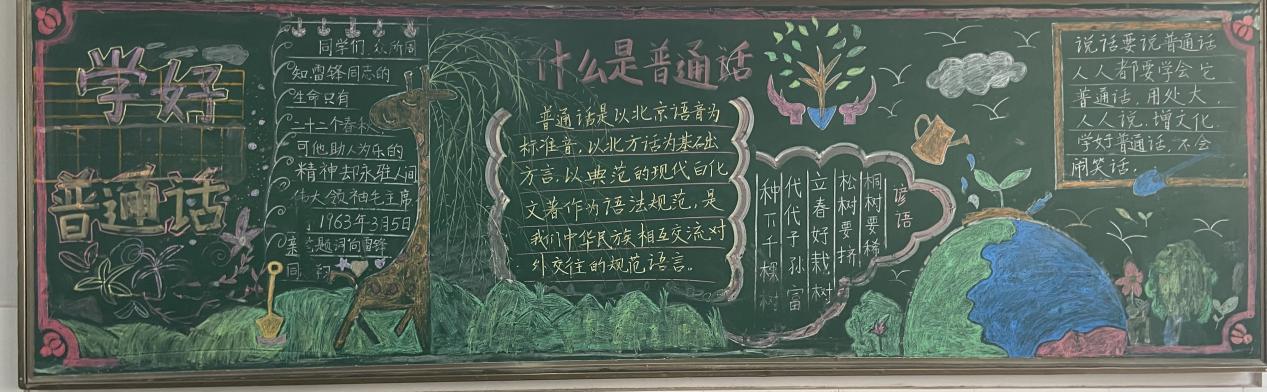 学好
普通话
同学们,众所周
知,雷锋同志的
生命只有
二十二个春秋,
可他助人为乐的
精神却永驻人间
伟大领袖毛主席
1963年3月5日
亲笔题词向雷锋
同
什么是普通话
普通话是以北京语音为
标准音,以北方话为基础
方言,以典范的现代白化
文著作为语法规范,是
我们中华民族相互交流对
外交往的规范语言。
谚语
桐树要稀
松树要挤
立春好栽树
代代子孙富
种下千棵树
说话要说普通话
人人都要学会它
普通话,用处大,
人人说,增文化.
学好普通话,不会
闹笑话.